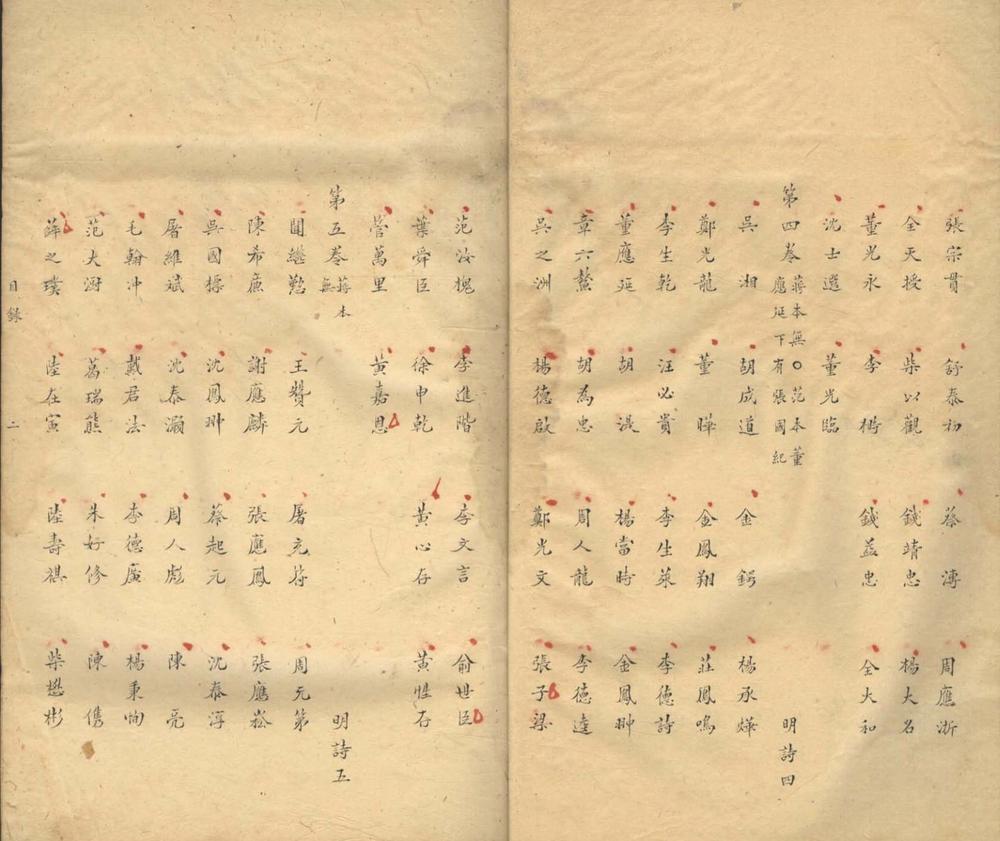 張宗貫 舒泰初 蔡漙 周應浙
全天授 柴以觀 錢靖忠 楊大名
董光永 李 錢益忠 全大和
沈士選 董光臨
第四卷 蔣本無○范本董應延下有張國紀 明詩四
吳湘 胡成道 金鍔 楊承燁
鄭光龍 董曄 金鳳翔 莊鳳鳴
李生乾 汪必貴 李生萊 李德詩
董應延 胡湜 楊當時 金鳳翀
章六鰲 胡為忠 周人龍 李德逵
吳之洲 楊德啟 鄭光文 張子梁
范汝槐 李進階 李文言 俞世臣
葉舜臣 徐申乾 黃心存 黃性存
管萬里 黃嘉恩
第五卷 蔣本無 明詩五
聞繼懃 王贊元 屠充符 周元第
陳希廉 謝應麟 張應鳳 張應崧
吳國標 沈鳳翀 蔡起元 沈泰淳
屠維斌 沈泰灝 周人彪 陳亮
毛翰冲 戴君法 李德廣 楊秉恂
范大澍 葛瑞熊 朱好修 陳儁
薛之璞 陸在寅 陸壽祺 柴懋彬
目錄 二